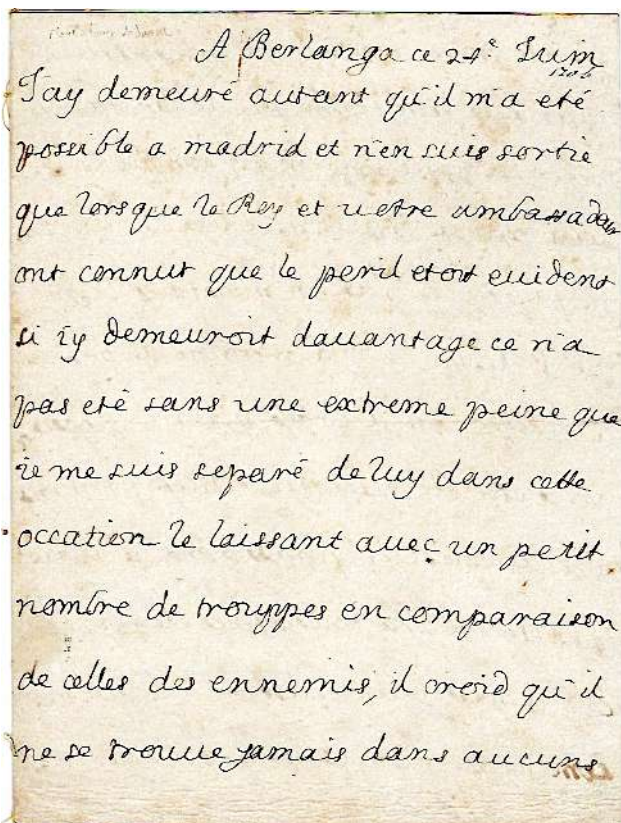 A Berlanga ce 24e Juin
1706
J'ay demeuré autant qu'il m'a eté
possible a madrid et n'en suis sortie
que lors que le Roy et vetre ambassadeur
ont connut que le peril etoit euident
si i'y demeuroit dauantage ce n'a
pas eté sans une extreme peine que
ie me suis separé de luy dans cette
occation le laissant auec un petit
nombre de trouppes en comparaison
de celles des ennemis, il croid qu'il
ne se trouue jamais dans aucuns